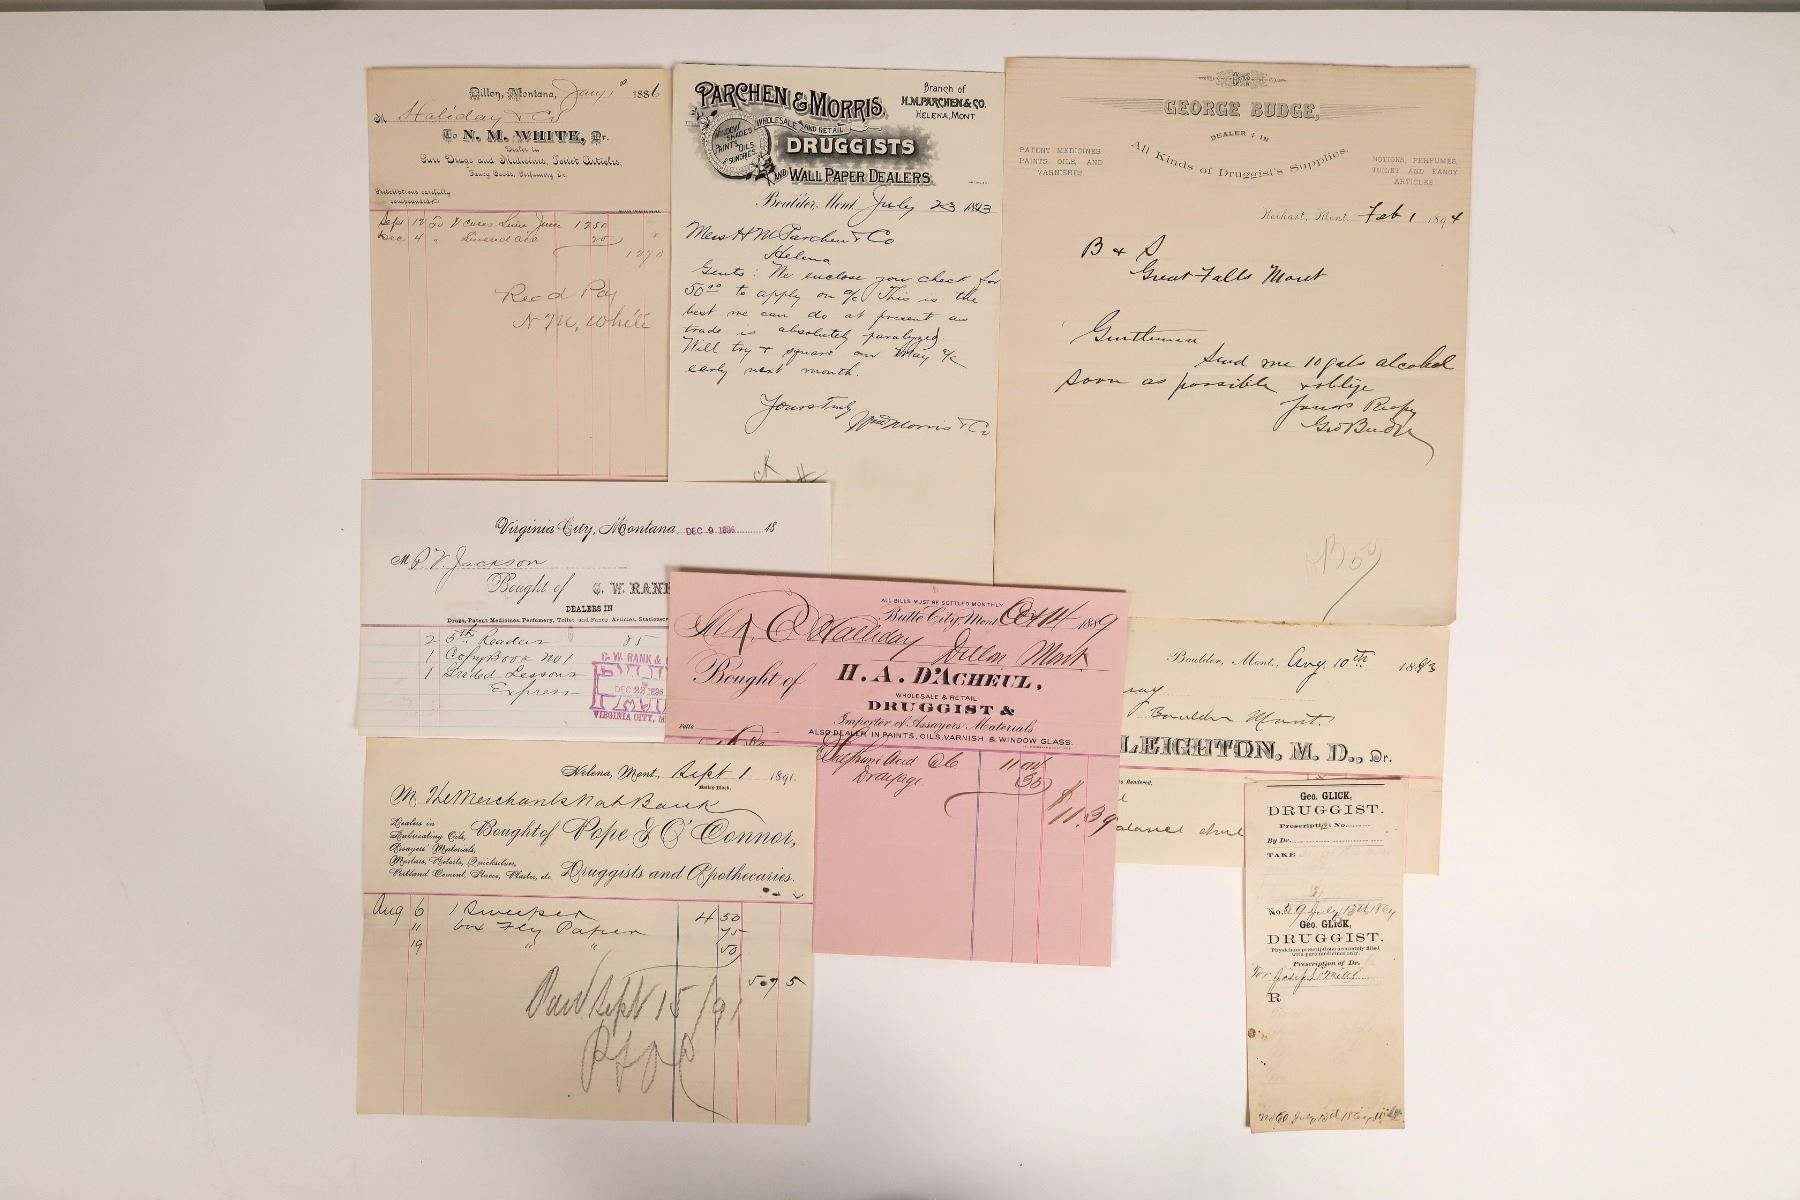 Dillon, Montana, Jany 1st 1886
M Haliday & Co
To N. M. WHITE, Dr.
Dealer in
Pure Drugs and Medicines, Toilet Articles,
Fancy Goods, Perfumery &c.
Prescriptions carefully
compounded
Sept 12 20 Lime Juice 12 50
Dec 4 20
12 70
Rec'd Pay
N. M. White
PARCHEN & MORRIS,
Branch of
H.M. PARCHEN & CO.
HELENA, MONT.
WHOLESALE AND RETAIL
DRUGGISTS
AND WALL PAPER DEALERS.
WINDOW SHADES
PAINTS, OILS
& SUNDRIES
Boulder, Mont July 23 1893
Mess H M Parchen & Co
Helena
Gents: We enclose you check for
50 00 to apply on a/c This is the
best we can do at present as
trade is absolutely paralyzed.
Will try & square our May a/c
early next month.
Yours truly
Morris & Co
GEORGE BUDGE,
DEALER IN
All Kinds of Druggist's Supplies.
PATENT MEDICINES
PAINTS, OILS, AND
VARNISHES.
NOTIONS, PERFUMES,
TOILET AND FANCY
ARTICLES
Neihart, Mont. Feb 1 1894
B & S
Great Falls Mont
Gentlemen
Send me 10 gals alcohol
soon as possible & oblige
Yours Respy
Geo Budge
Virginia City, Montana, DEC 9 1896 18
M P. V. Jackson
Bought of C. W. RANK
DEALERS IN
Drugs, Patent Medicines, Perfumery, Toilet and Fancy Articles, Stationery
2 5th Readers 85
1 Copy Book No 1
1 Graded Lessons
Express
C. W. RANK &
PAID
DEC 22 1896
VIRGINIA CITY, M
ALL BILLS MUST BE SETTLED MONTHLY
Butte City, Mont Oct 14 1889
Halliday
Dillon Mont
Bought of H. A. D'ACHEUL,
WHOLESALE & RETAIL
DRUGGIST &
Importer of Assayers' Materials
ALSO DEALER IN PAINTS, OILS, VARNISH & WINDOW GLASS.
Folio
Acid
Drayage
$ 11.39
Boulder, Mont., Aug 10th 1893
Boulder Mont.
LEIGHTON, M. D., Dr.
Helena, Mont., Sept 1 1891
Bailey Block.
M The Merchants Nat Bank
Bought of Pope & O'Connor,
Druggists and Apothecaries.
Dealers in
Lubricating Oils,
Assayers' Materials,
Mortars, Retorts, Quicksilver,
Portland Cement, Stucco, Plaster, etc
Aug 6 1 Sweeper 4 50
11 box Fly Paper 75
19 " " 50
5.75
Paid Sept 15/91
Geo. GLICK,
DRUGGIST.
Prescription No.
By Dr.
TAKE
No. 59 July 13th 1864
Geo. GLICK,
DRUGGIST.
Physicians prescriptions accurately filled
with pure medicines only.
Prescription of Dr.
For Joseph
R
No 60 July 13d 186